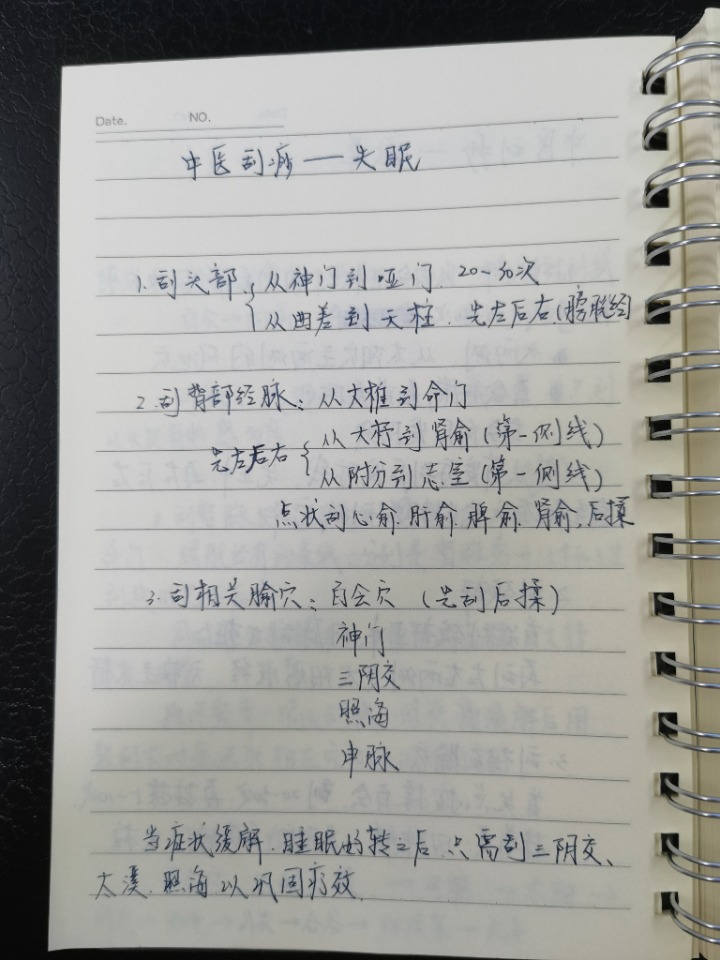 Date. NO.
中医刮痧——失眠
1. 刮头部 从神门到哑门. 20~30次
从曲差到天柱. 先左后右(膀胱经)
2. 刮背部经脉: 从大椎到命门
先左后右 从大杼到肾俞(第一侧线)
从附分到志室(第一侧线)
点状刮心俞. 肝俞 脾俞. 肾俞, 后揉
3. 刮相关腧穴: 百会穴 (先刮后揉)
神门
三阴交
照海
申脉
当症状缓解. 睡眠好转之后 只需刮三阴交、
太溪. 照海以巩固疗效.